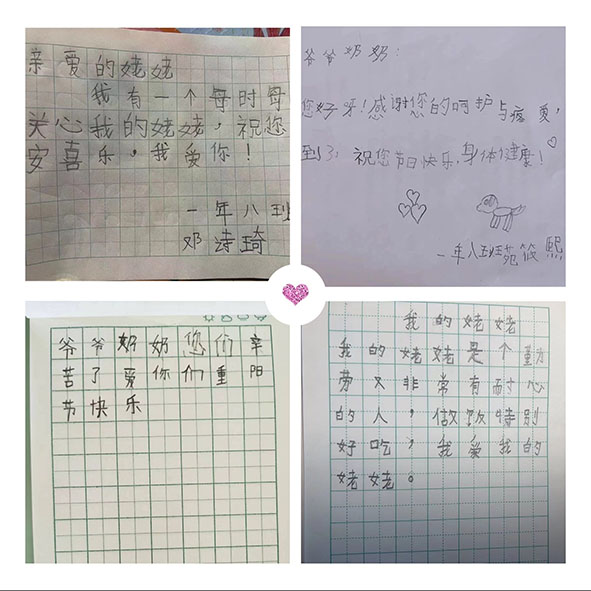 亲爱的姥姥
我有一个每时每
关心我的姥姥，祝您
安喜乐，我爱你！
一年八班
邓诗琦
爷爷奶奶：
您好呀！感谢您的呵护与疼爱，
到了，祝您节日快乐，身体健康！
一年八班苑筱熙
爷爷奶奶您们辛
苦了爱你们重阳
节快乐
我的姥姥
我的姥姥是个勤
劳又非常有耐心
的人，做饭特别
好吃，我爱我的
姥姥。